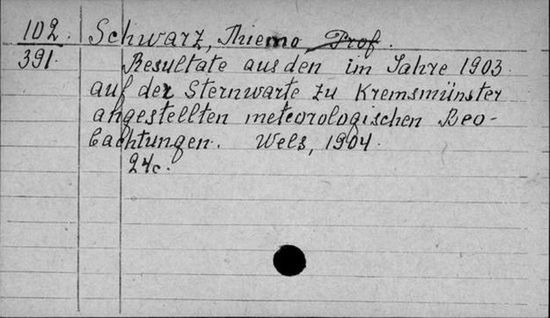 102. Schwarz, Thiemo, Prof.
391. Resultate aus den im Jahre 1903
auf der Sternwarte zu Kremsmünster
angestellten meteorologischen Beo-
bachtungen. Wels, 1904.
24c.